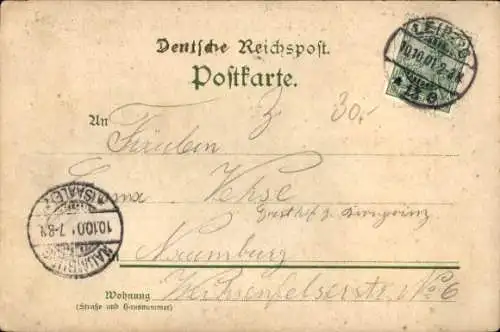 LEIPZIG
10.10.01. 2-3N.
* 13 e
Deutsche Reichspost.
Postkarte.
30,-
An
Fräulein
Vehse
Gasthof z. Kronprinz
NAUMBURG
(SAALE)
10.10.01. 7-8N.
Naumburg
Weissenfelserstr. No 6
Wohnung
(Straße und Hausnummer)